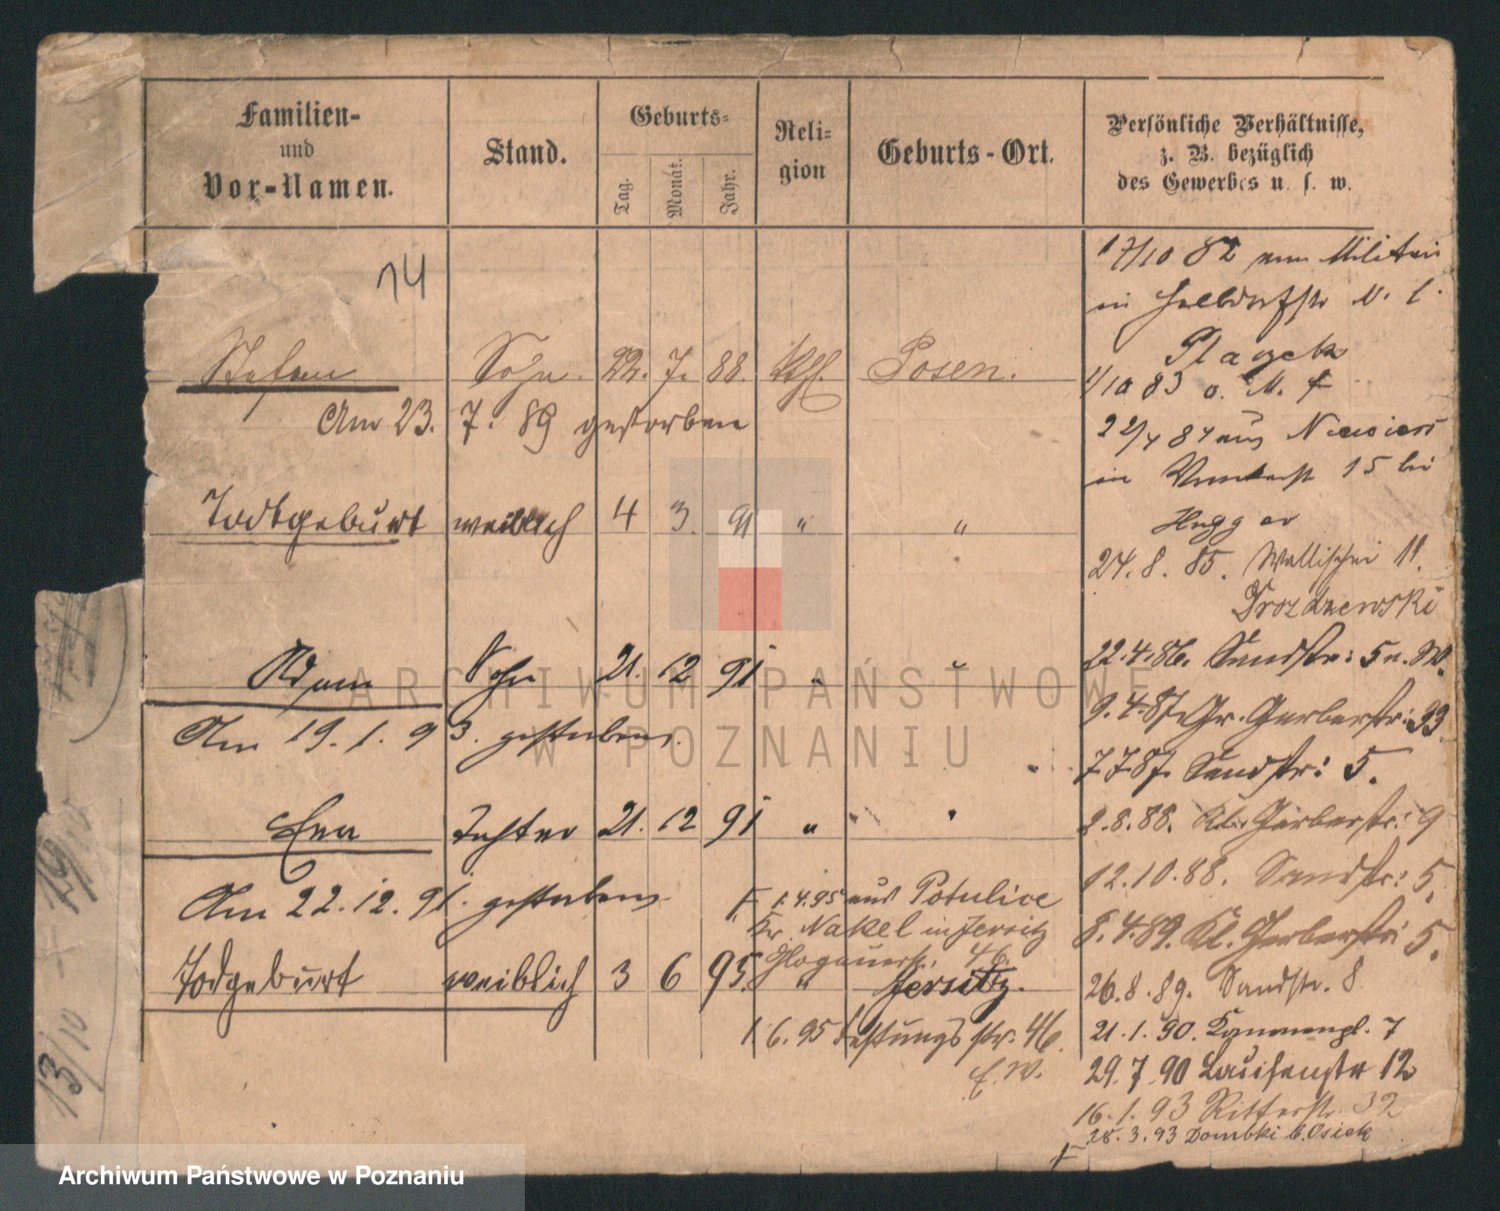 Familien-
und
Vor-Namen.
Stand.
Geburts-
Tag.
Monat.
Jahr.
Reli-
gion
Geburts-Ort.
Persönliche Verhältnisse,
z. B. bezüglich
des Gewerbes u. s. w.
14
Stefan Sohn. 22. 7. 88. kth. Posen.
Am 23. 7. 89 gestorben
Todtgeburt weiblich 4 3. 91 " "
Adam Sohn 21. 12 91 "
Am 19. 1. 93. gestorben.
Eva Tochter 21. 12 91 "
Am 22. 12. 91. gestorben
1.4.95 aus Potulice
Kr. Nakel in Jersitz
Glogauerstr. 46.
Todgeburt weiblich 3 6 95. " Jersitz.
1. 6. 95 Festungsstr. 46.
E. W.
17/10 82 zum Militair
in N.
1/10 83 v. M.
22/4 84 aus
in 15 bei
24. 8. 85. Wallischei 11.
Drozdzewski
22. 4. 86. Sandstr: 5 n. W.
9. 4. 87. Gr. Gerberstr: 33
7. 7. 87. Sandstr: 5.
2. 8. 88. Kl. Gerberstr: 9
12. 10. 88. Sandstr: 5.
8. 4. 89. Kl. Gerberstr: 5.
26. 8. 89. Sandstr. 8
21. 1. 90. Kanonenpl. 7
29. 7. 90 12
16. 1. 93 Ritterstr. 32
28. 3. 93 Dombki b. Osiek
13/10
ARCHIWUM PAŃSTWOWE
W POZNANIU
Archiwum Państwowe w Poznaniu